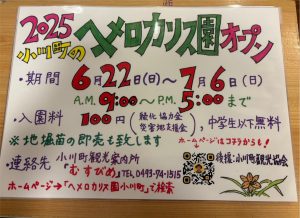 2025
小川町のヘメロカリス園オープン
・期間 6月22日(日)〜7月6日(日)
A.M. 9:00〜P.M. 5:00まで
・入園料 100円(緑化協力金), 中学生以下無料
※地場苗の即売も致します
ホームページはコチラから!
・連絡先 小川町観光案内所
「むすびめ」TEL 0493-74-1515
後援:小川町観光協会
ホームページ→「ヘメロカリス園小川町」で検索